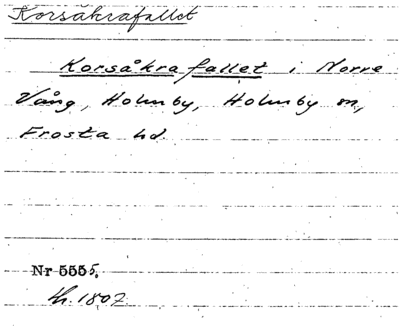 Korsåkrafallet
Korsåkrafallet i Norre
Vång, Holmby, Holmby sn,
Frosta hd.
Nr 5555.
th. 1807.